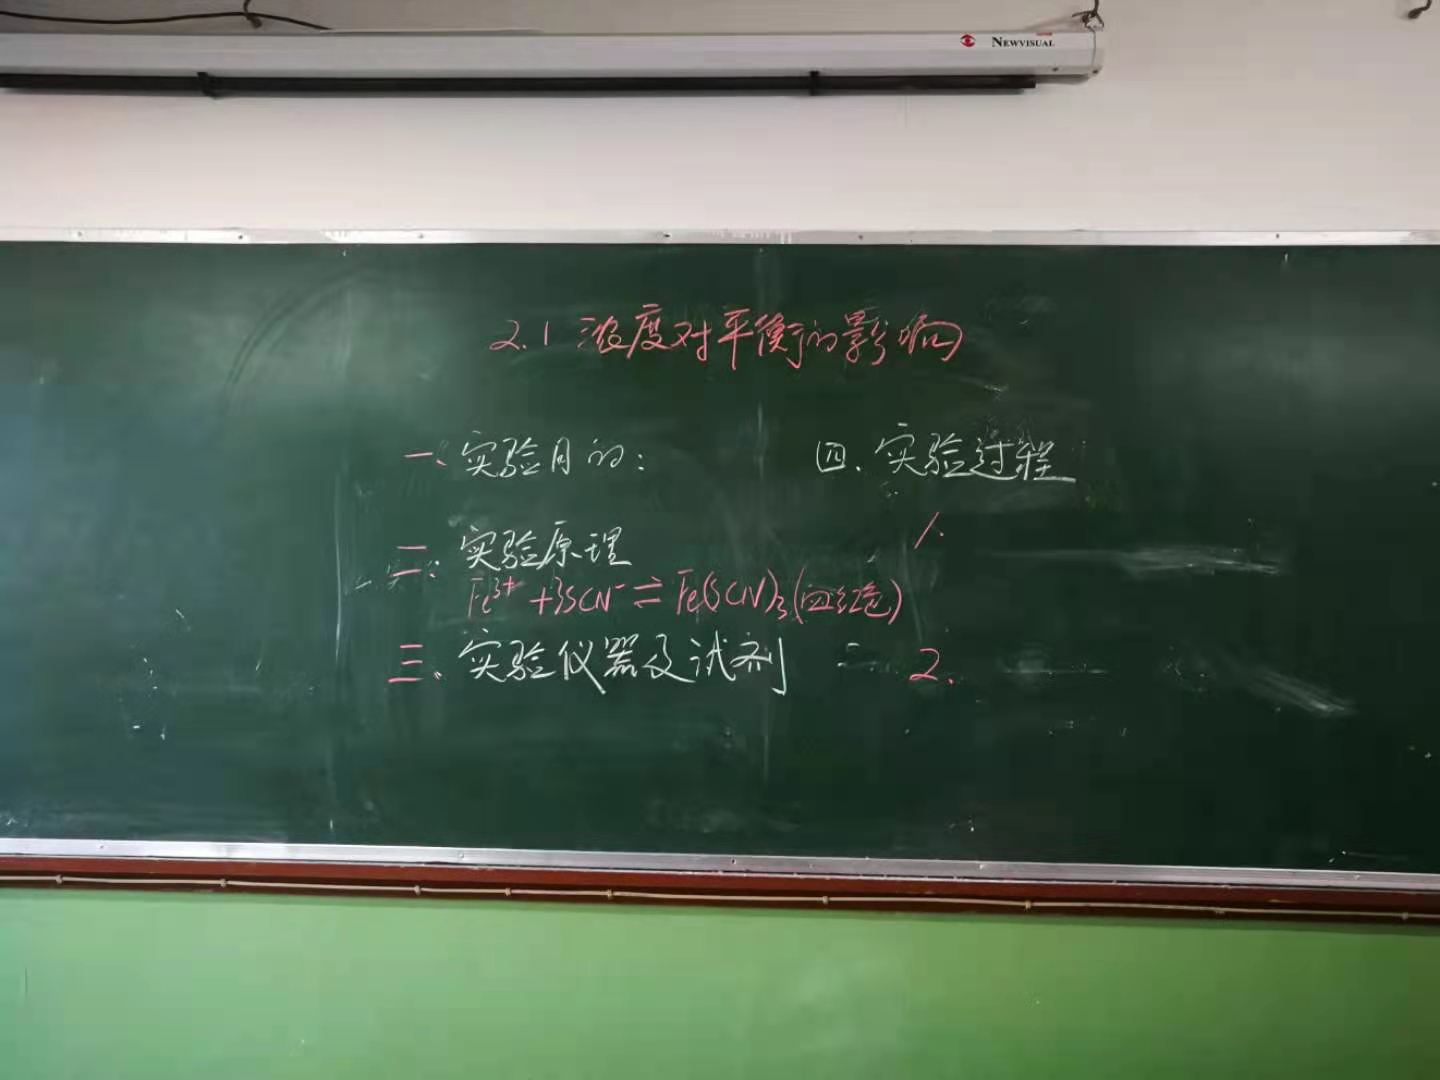 NEWVISUAL
2.1 浓度对平衡的影响
一、实验目的:
二、实验原理
Fe³⁺ + 3SCN⁻ ⇌ Fe(SCN)₃(血红色)
三、实验仪器及试剂
四、实验过程
1.
2.